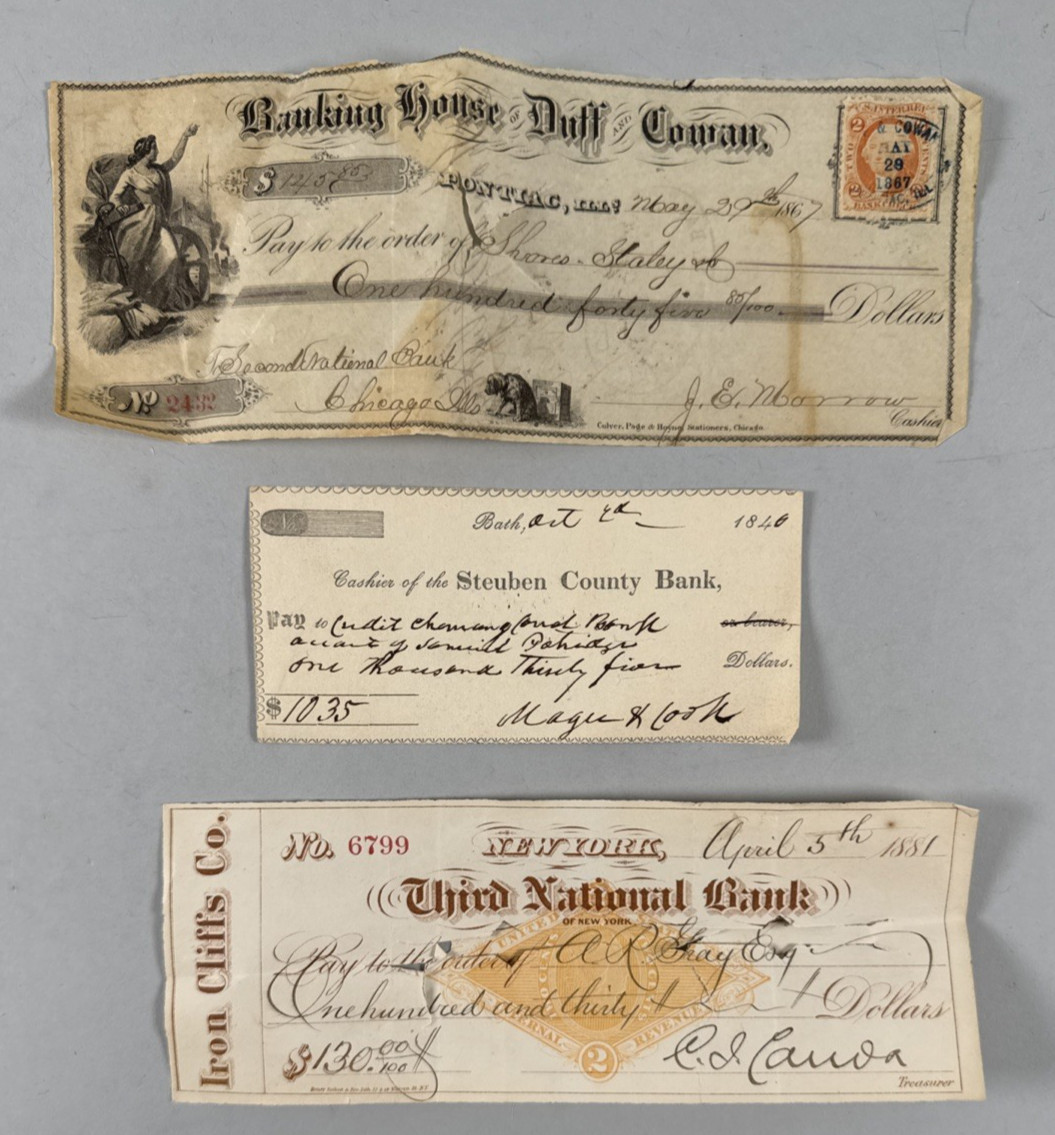 Banking House OF Duff AND Cowan.
$ 145 80
U.S. INTER. REV.
2 2
TWO CENTS
BANK CHECK
& COWAN
MAY
29
1867
ILL.
PONTIAC, ILLS. May 29th 1867
Pay to the order of Shores Staley & Co
One hundred forty five 80/100 Dollars
To Second National Bank
Chicago Ills
No 2432
J. E. Morrow
Cashier
Culver, Page & Hoyne, Stationers, Chicago.
No.
Bath, Oct 1840
Cashier of the Steuben County Bank,
Pay to Credit Chemung Canal Bank or bearer,
account of Samuel
one Thousand Thirty five Dollars.
$ 1035
Magee & Cook
Iron Cliffs Co.
No. 6799 NEW YORK, April 5th 1881
Third National Bank
OF NEW YORK
UNITED
Pay to the order of A R Gray Esq
One hundred and thirty Dollars
INTERNAL REVENUE
2
$130.00/100
C. J. Canda
Treasurer